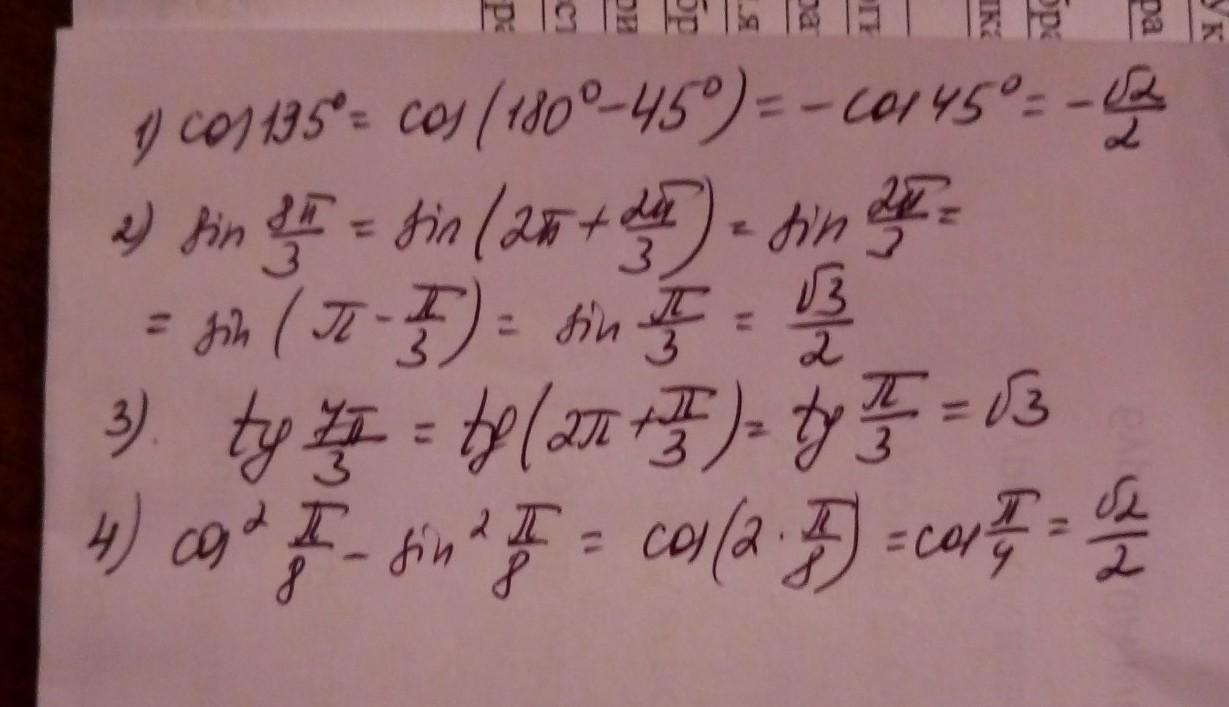 1) cos 135° = cos(180° - 45°) = - cos 45° = - √2/2
2) sin 8π/3 = sin(2π + 2π/3) = sin 2π/3 =
= sin(π - π/3) = sin π/3 = √3/2
3). tg 7π/3 = tg(2π + π/3) = tg π/3 = √3
4) cos² π/8 - sin² π/8 = cos(2 · π/8) = cos π/4 = √2/2